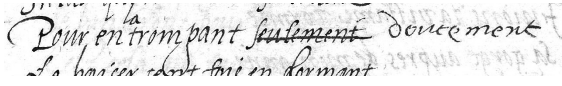 Pour en la trompant seulement doucement
La baiser cent fois en dormant